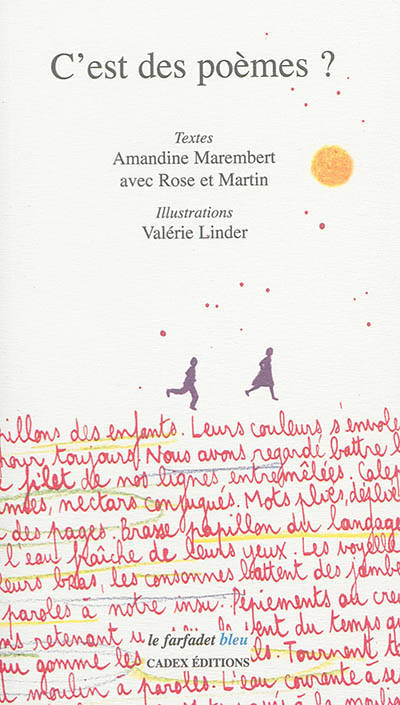 C'est des poèmes ?
Textes
Amandine Marembert
avec Rose et Martin
Illustrations
Valérie Linder
pillons des enfants. Leurs couleurs s'envole
pour toujours. Nous avons regardé battre l
filet de nos lignes entremêlées. Calep
indes, nectars conjugués. Mots pliés, déplié
des pages. Brasse papillon du langage
l'eau fraîche de leurs yeux. Les voyelle
leurs bras, les consonnes battent des jambe
paroles à notre insu. Pépiements au creu
ns retenant u nt du temps qu
le farfadet bleu
qui gomme les ls. Tournent to
CADEX ÉDITIONS
moulin a paroles. L'eau courante à se
à la moulin